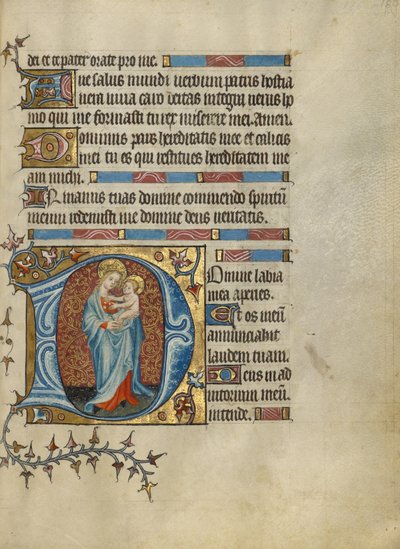 dei et te pater orate pro me.
Ave salus mundi verbum patris hostia
viva caro deitas integra verus ho
mo qui me formasti tu rex miserere mei. Amen.
Dominus pars hereditatis mee et calicis
mei tu es qui restitues hereditatem me
am michi.
In manus tuas domine commendo spiritū
meum redemisti me domine deus veritatis.
Domine labia
mea aperies.
Et os meū
annunciabit
laudem tuam.
Deus in ad
iutorium meū
intende.